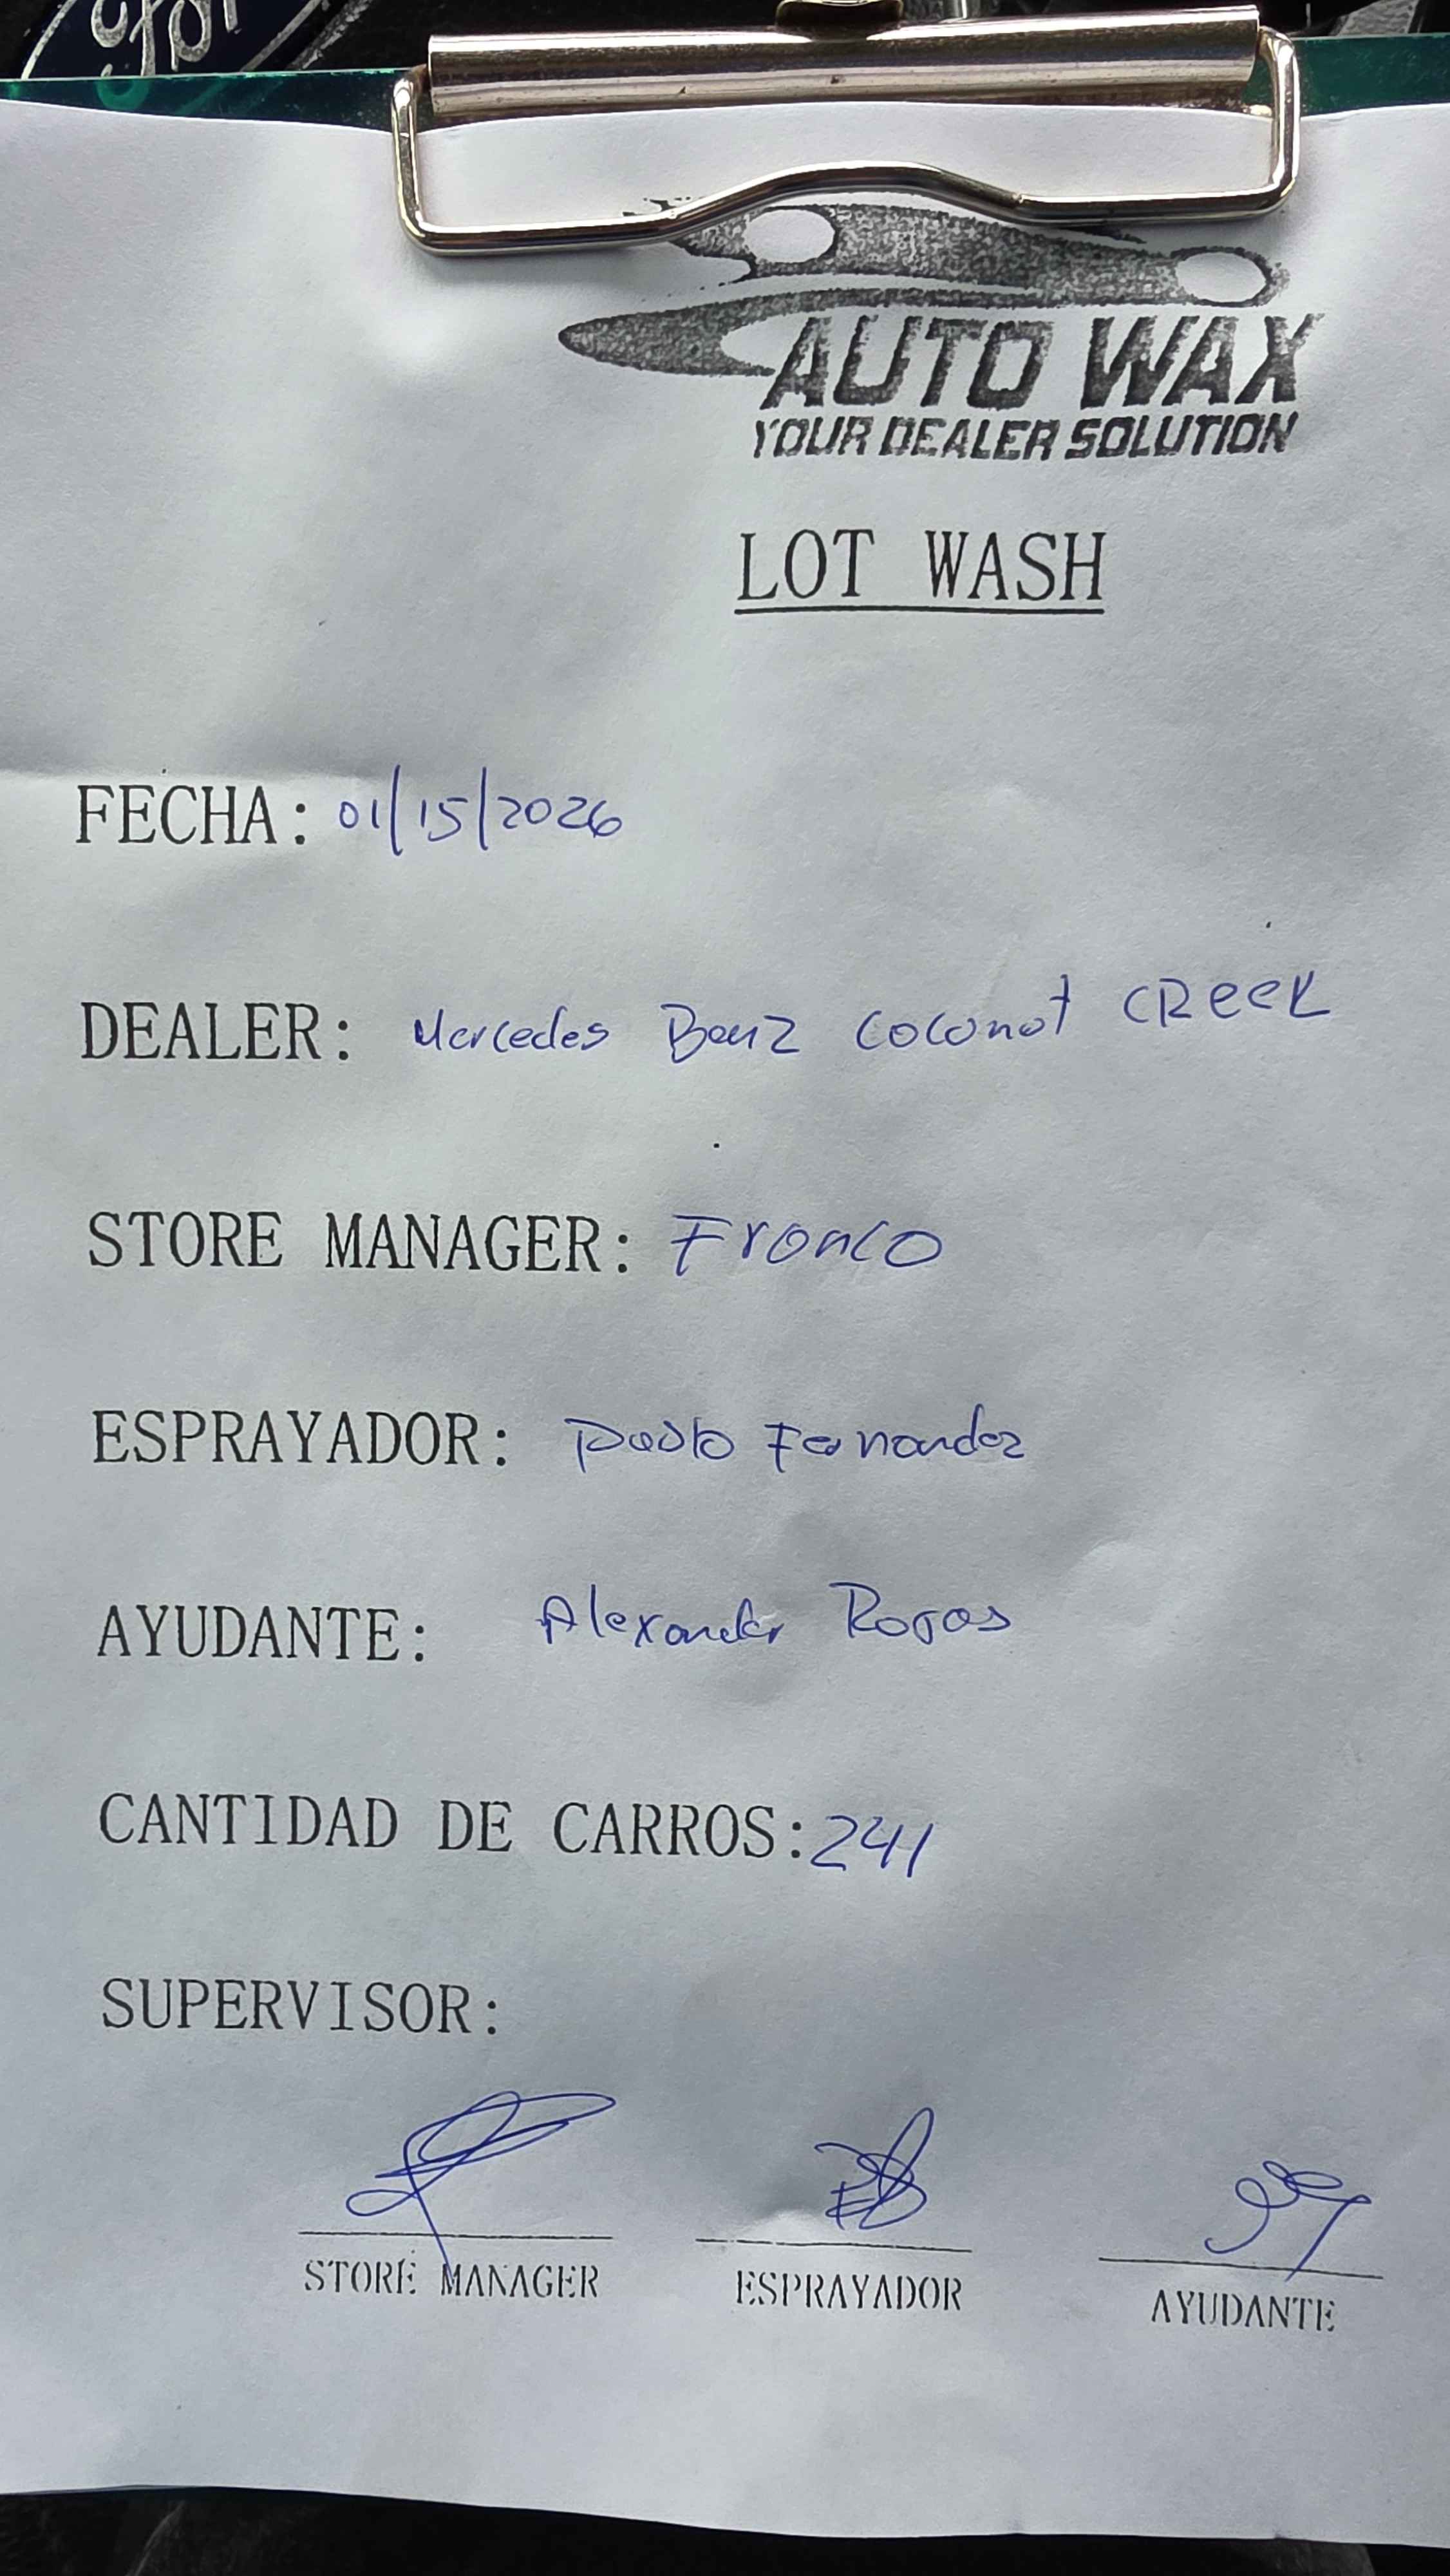 AUTO WAX
YOUR DEALER SOLUTION
LOT WASH
FECHA: 01/15/2026
DEALER: Mercedes Benz Coconot CReek
STORE MANAGER: Franco
ESPRAYADOR: Pablo Fernandez
AYUDANTE: Alexander Rojas
CANTIDAD DE CARROS: 241
SUPERVISOR:
STORE MANAGER ESPRAYADOR AYUDANTE